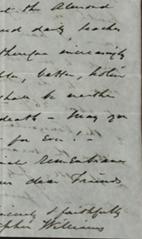 the Almond
and daily, teaches
therefore increasingly
better, holier
shall be neither
death - May you
for Ever! -
remembrance
dear Friends
& faithfully
Williams